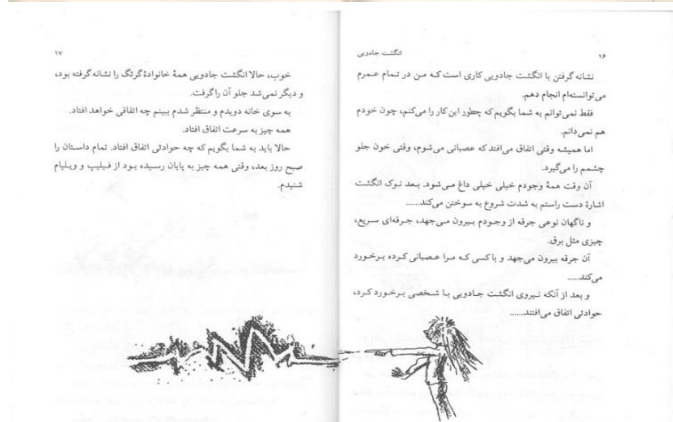 ۱۶ انگشت جادویی
نشانه گرفتن با انگشت جادویی کاری است که من در تمام عمرم
می‌توانسته‌ام انجام دهم.
فقط نمی‌توانم به شما بگویم که چطور این کار را می‌کنم، چون خودم
هم نمی‌دانم.
اما همیشه وقتی اتفاق می‌افتد که عصبانی می‌شوم، وقتی خون جلو
چشمم را می‌گیرد.
آن وقت همهٔ وجودم خیلی خیلی داغ می‌شود. بعد نوک انگشت
اشارهٔ دست راستم به شدت شروع به سوختن می‌کند......
و ناگهان نوعی جرقه از وجودم بیرون می‌جهد، جرقه‌ای سریع،
چیزی مثل برق.
آن جرقه بیرون می‌جهد و باکسی که مرا عصبانی کرده برخورد
می‌کند.....
و بعد از آنکه نیروی انگشت جادویی با شخصی برخورد کرد،
حوادثی اتفاق می‌افتند......
۱۷
خوب، حالا انگشت جادویی همهٔ خانوادهٔ گرگ را نشانه گرفته بود،
و دیگر نمی‌شد جلو آن را گرفت.
به سوی خانه دویدم و منتظر شدم ببینم چه اتفاقی خواهد افتاد.
همه چیز به سرعت اتفاق افتاد.
حالا باید به شما بگویم که چه حوادثی اتفاق افتاد. تمام داستان را
صبح روز بعد، وقتی همه چیز به پایان رسیده بود از فیلیپ و ویلیام
شنیدم.